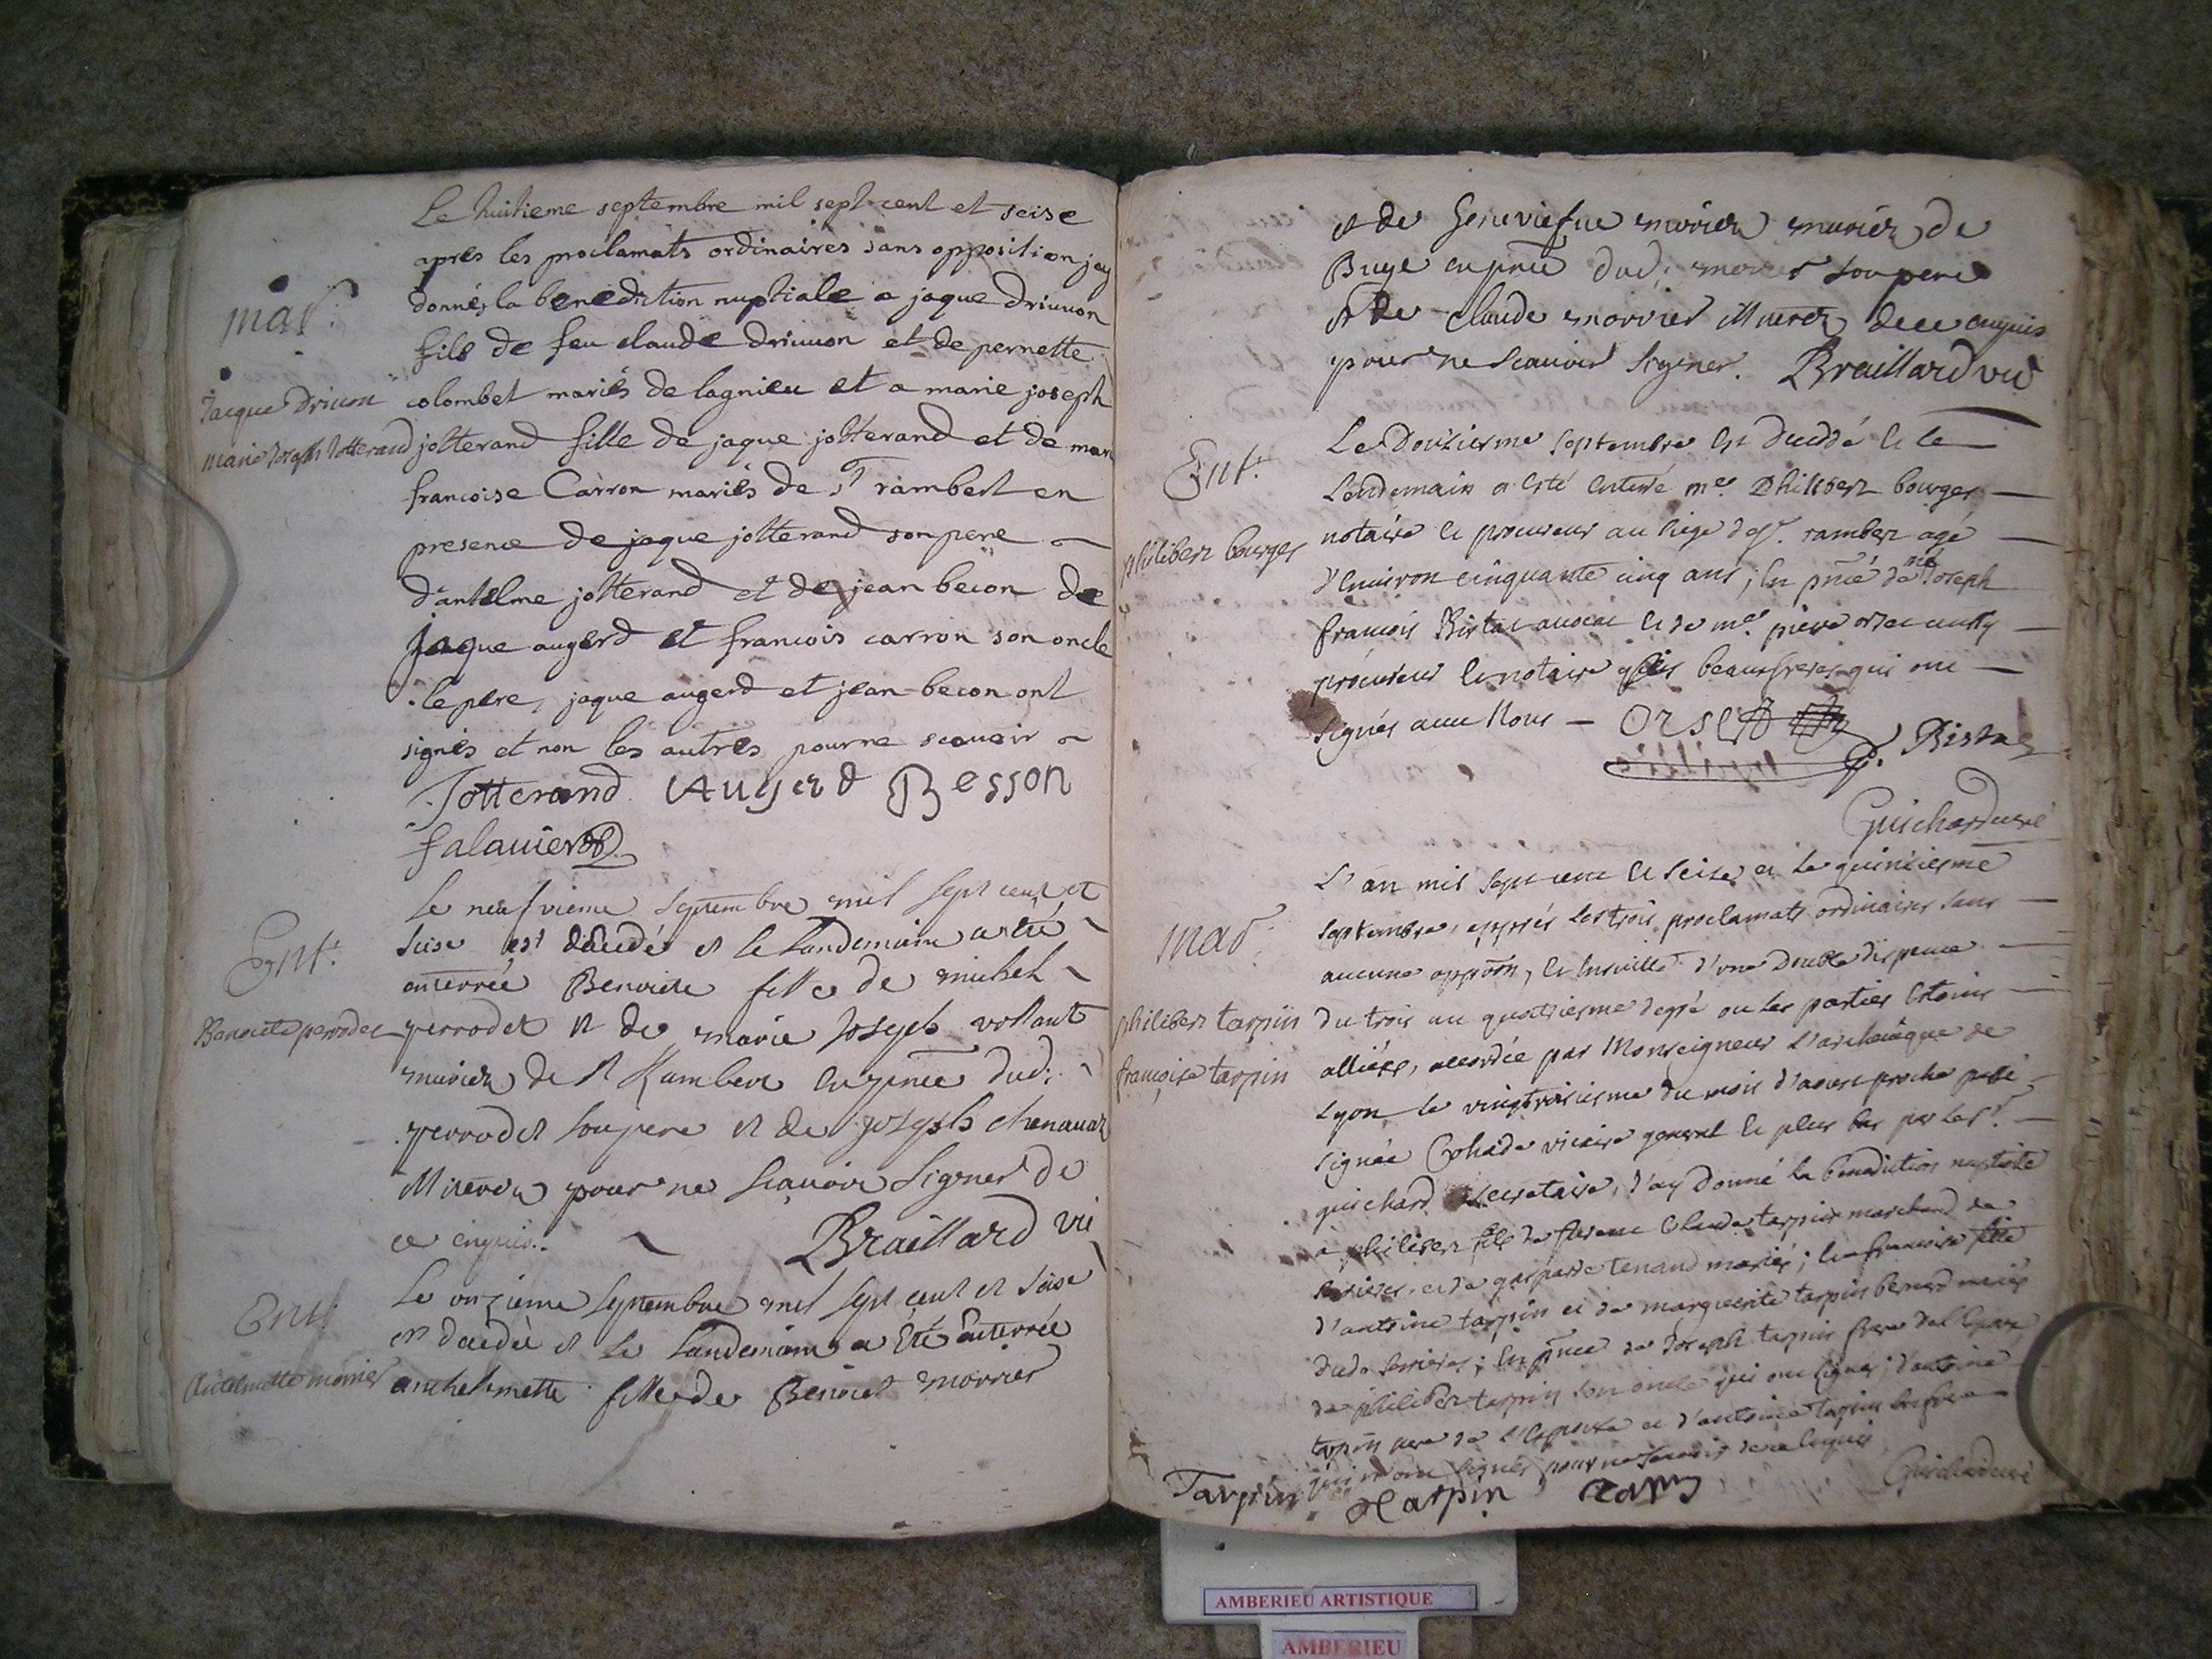 Le huitieme septembre mil sept cent et seise
apres les proclamats ordinaires sans opposition jay
mar.
donnés la benediction nuptiale a jaque Driuuon
fils de feu claude driuuon et de pernette
Jacque Driuon
colombet mariés de lagnieu et a marie joseph
marie Joseph Jotterand
jotterand fille de jaque jotterand et de mari
francoise Carron mariés de St rambert en
presence de jaque jotterand son pere
d'antelme jotterand et de jean becon de
jaque augerd et francois carron son oncle
le pere, jaque augerd et jean becon ont
signés et non les autres pour ne scavoir
Jotterand Augerd Besson
falauier
Le neufvieme septembre mil sept cent et
Ent.
seise est décedée et le landemain a esté
enterrée Benoiste fille de michel
Benoite perrodet
perrodet et de marie Joseph vollant
mariez de St Rambert en pnce dud.
perrodet son pere et de joseph chenauaz
pour ne scauoir signer de
ce enquis. Braillard vic
Ent.
Le onzieme septembre mil sept cent et seise
est decedée et le landemain a été enterrée
Antelmette morrier
anthelmette fille de Benoist morrier
et de Geneviefue morier mariez de
Buge en pnce dud. morrier son pere
et de claude morrier de ce enquis
pour ne scauoir signer. Braillard vic
Le Douziesme septembre est decedé et le
Ent.
Lendemain a esté enterré me. Philibert bourges
notaire et procureur au siege de St. rambert agé
philibert bourges
d'enuiron cinquante cinq ans; en pnce de me Joseph
francois Bistac auocat et de me. piere orset aussy
procureur et notaire ses beaufreres qui ont
signés auec Nous — Orset J. Bistac
Guichard curé
L'an mil sept cent et seise et le quinziesme
mar.
septembre, apprés les trois proclamats ordinaires sans
aucune oppon, et ensuitte d'une double dispence
philibert tarpin
du trois au quatriesme degré ou les parties estoient
françoise tarpin
alliées, accordée par Monseigneur L'archeuêque de
Lyon le vingtroisiesme du mois d'aoust proche passé
signée Cohade vicaire general et plus bas par le sr.
guichard secretaire, J'ay donné la bénédiction nuptiale
à philibert fils de Claude tarpin marchand de
serrieres, et de gasparde tenand mariés; et a francoise fille
d'antoine tarpin et de marguerite tarpin bernard mariés
dud. serrieres; en pnce de Joseph tarpin frere de l'epoux
de philibert tarpin son oncle qui ont signés; d'antoine
tarpin pere de l'Epouse et d'antoine tarpin son frere
qui n'ont signés pour ne scavoir de ce enquis
Tarpin Tarpin Guichard curé
AMBERIEU ARTISTIQUE
AMBERIEU